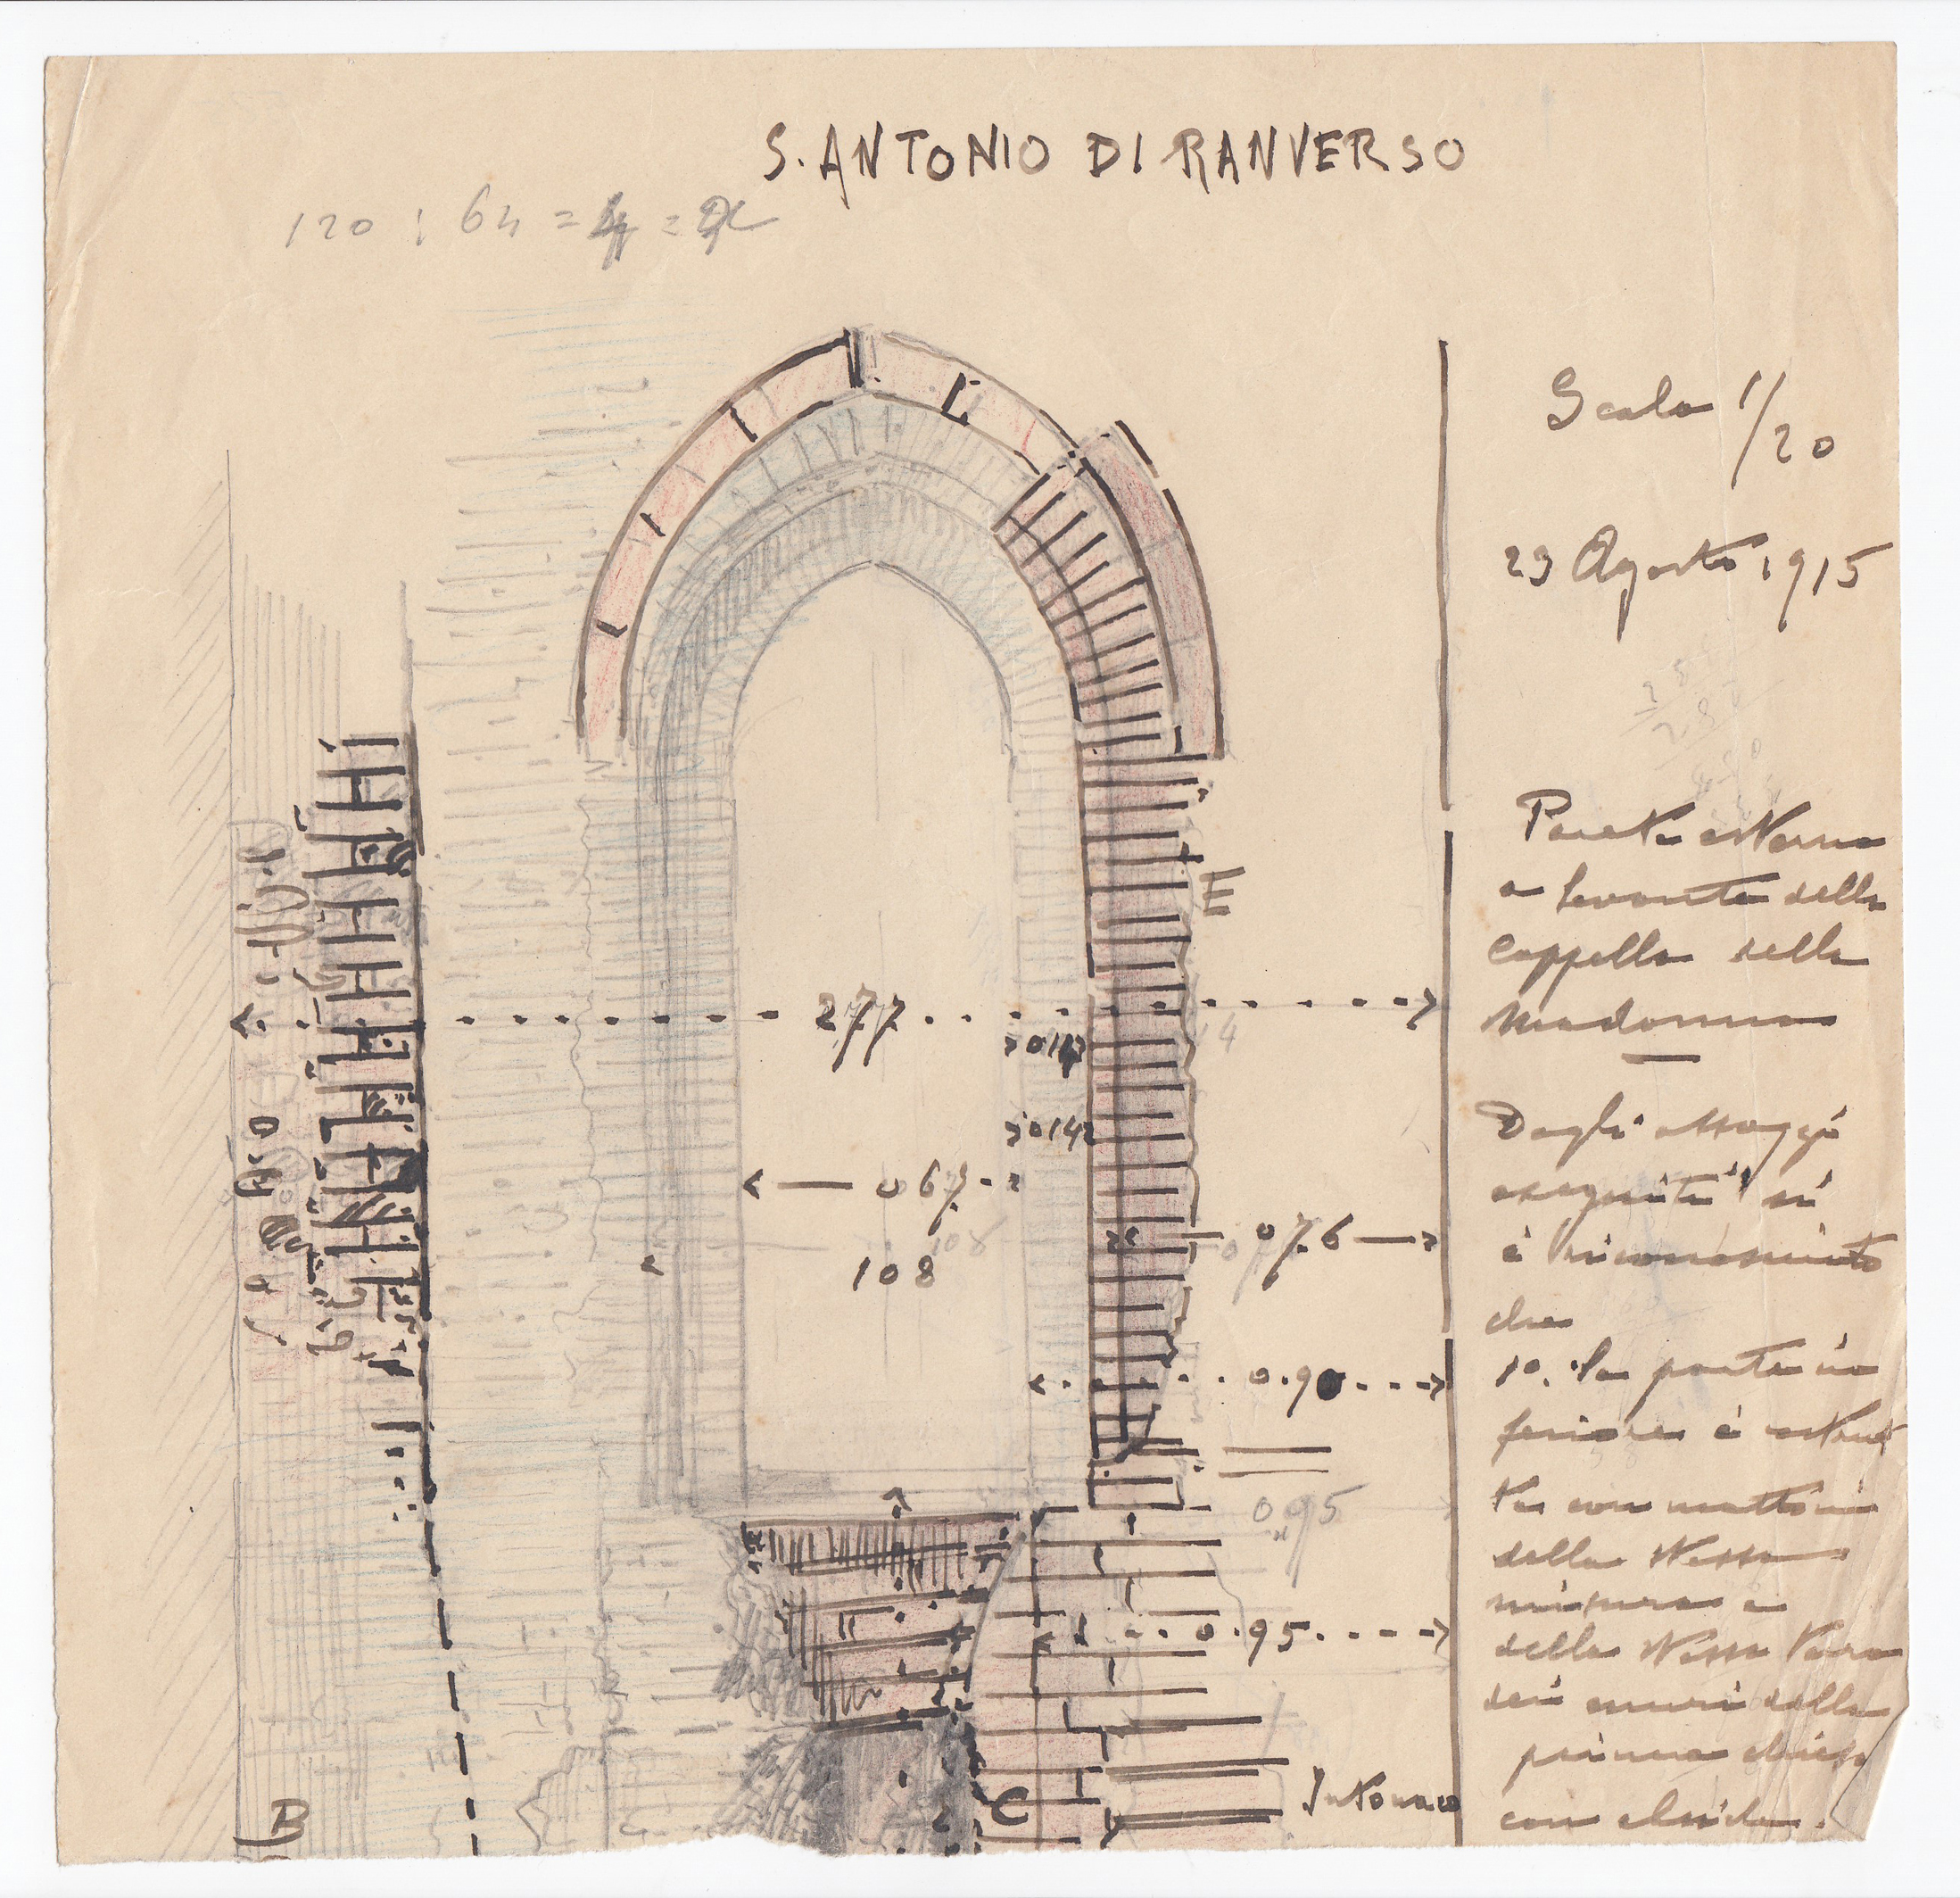 S. ANTONIO DI RANVERSO
120 : 64 =
Scala 1/20
23 Agosto 1915
Parete esterna
a levante della
Cappella della
Madonna
Dagli assaggi
eseguiti si
è riconosciuto
che
1o. la parte in
feriore è costrui
ta con mattoni
della stessa
misura e
della stessa terra
dei muri della
primera chiesa
con abside.
E
277
014
014
14
067
108
108
076
0.90
095
0.95
Intonaco
B
C